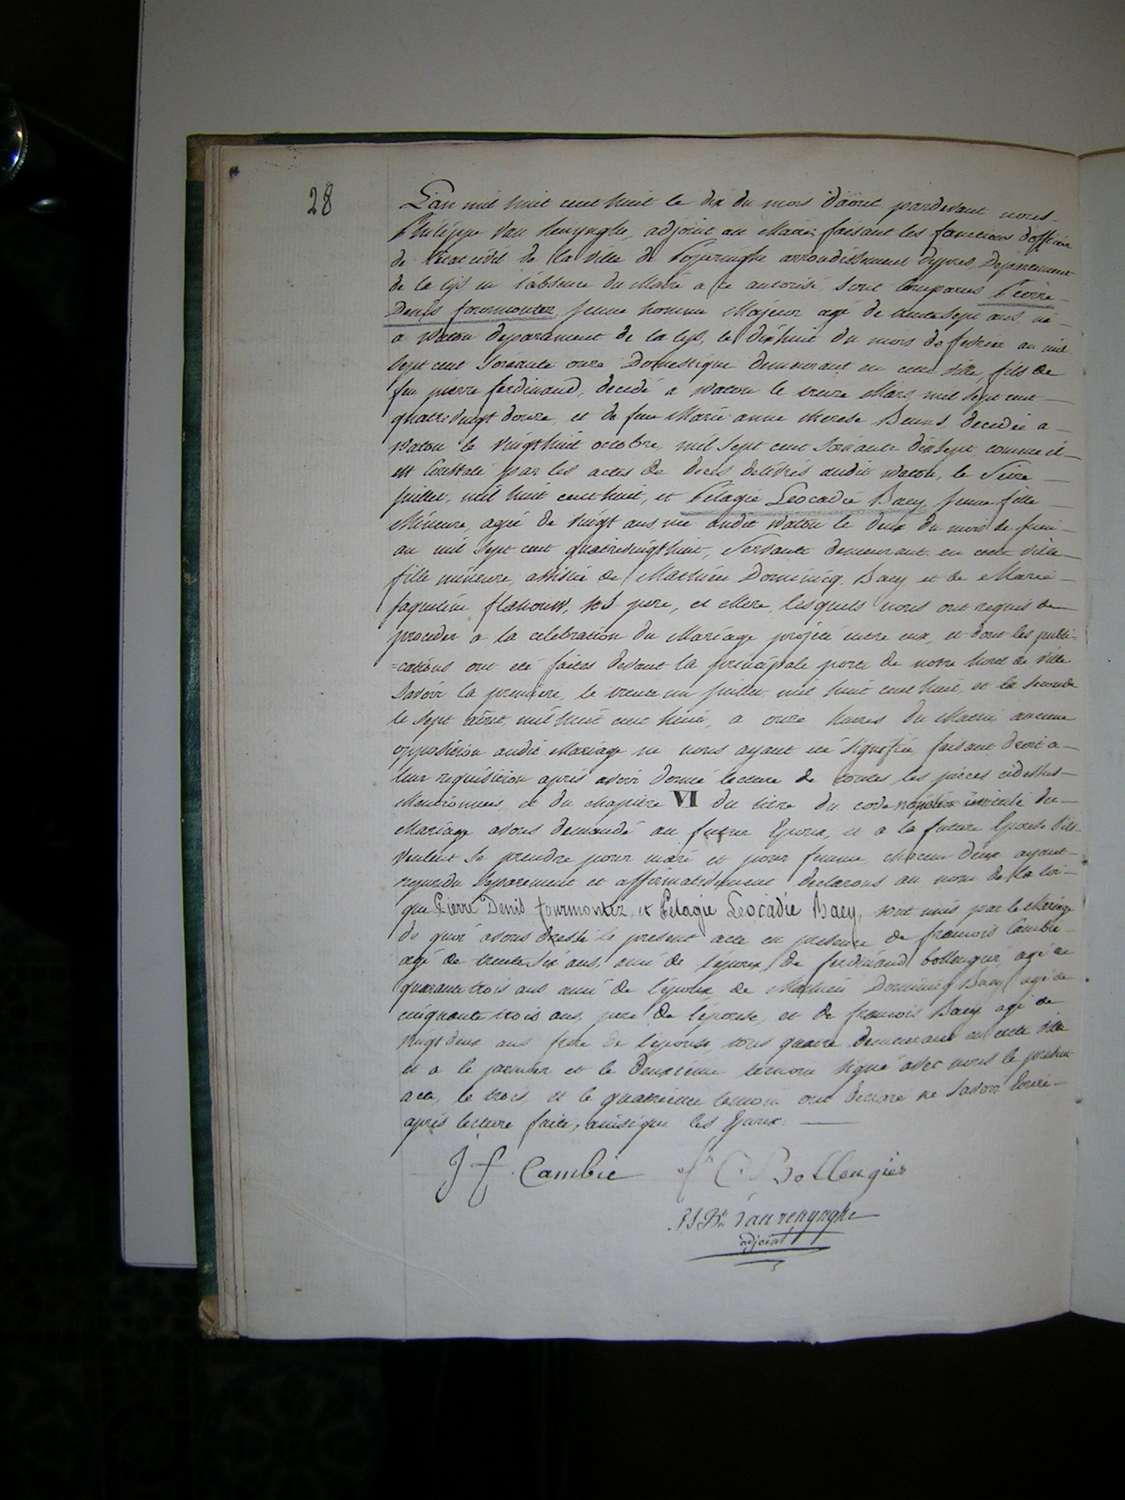 28
L'an mil huit cent huit le dix du mois d'aout pardevant nous
Philippe Van Renynghe, adjoint au Maire, faisant les fonctions d'officier
de l'etat civil de la ville de Poperinghe arrondissement d'ypres, Departement
de la Lys en l'absence du Maire a ce autorisé, sont comparus Pierre
Denis fourmontez, jeune homme Majeur agé de trente sept ans, né
a Watou departement de la Lys, le dixhuit du mois de fevrier an mil
sept cent soixante onze Domestique demeurant en cette ville, fils de
feu pierre ferdinand, decedé a watou le treize Mars mil sept cent
quatrevingt douze, et de feue Marie anne therese Beuns, decedée a
watou le vingthuit octobre mil sept cent soixante dixsept comme il
est constaté par les actes de deces delivrés audit watou, le seize
juillet, mil huit cent huit, et Pelagie Leocadie Baey jeune fille
Mineure, agée de vingt ans née audit watou le deux du mois de juin
an mil sept cent quatrevingthuit, servante demeurant en cette ville
fille mineure, assistée de Mathieu Dominicq Baey et de Marie
jaqueline flahouw, ses pere, et Mere, lesquels nous ont requis de
proceder a la celebration du Mariage projeté entre eux, et dont les publi-
=cations ont eté faites devant la principale porte de notre hotel de ville
savoir la premiere, le trente un juillet mil huit cent huit, et la seconde
le sept aout mil huit cent huit, a onze heures du Matin aucune
opposition audit Mariage ne nous ayant eté signifiée, faisant droit a
leur requisition après avoir donné lecture de toutes les pieces cidessus
Mentionnées, et du chapitre VI du titre du code napoléon intitulé du
Mariage avons demandé au futur Epoux, et a la future Epouse s'ils
veulent se prendre pour mari et pour femme chacun d'eux ayant
repondu separement et affirmativement declarons au nom de la loi
que Pierre Denis fourmontez, et Pelagie Leocadie Baey, sont unis par le Mariage
de quoi avons dressé le present acte en presence de francois Cambie
agé de trente six ans, ami de l'époux, de ferdinand bollengier, agé de
quarante trois ans ami de l'époux, de Mathieu Dominicq Baey, agé de
cinquante trois ans, pere de l'épouse, et de francois Baey agé de
vingt deux ans frere de l'épouse, tous quatre demeurant en cette ville
et a le premier et le deuxieme temoin signé avec nous le present
acte, le trois, et le quatrieme temoin ont declaré ne savoir ecrire
après lecture faite, ainsi que les Epoux.
J f. Cambie f. C. Bollengier
P. J. Bte Van renynghe
adjoint